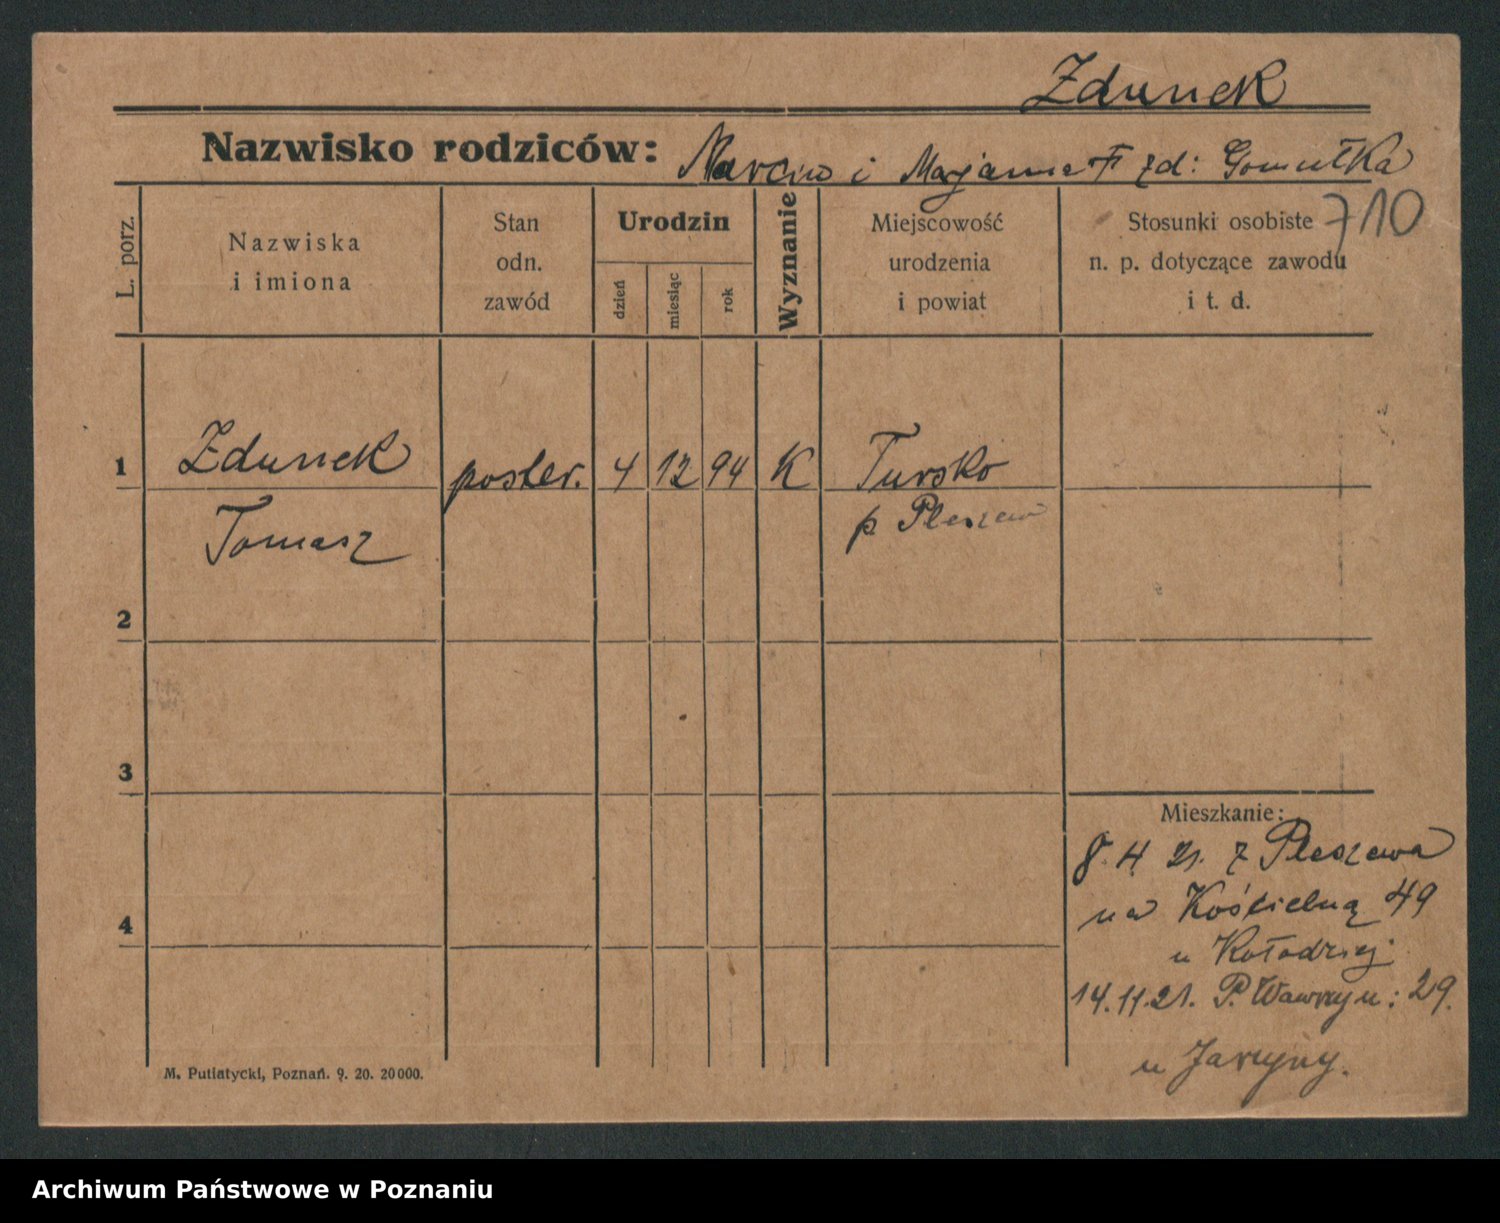 Zdunek
Nazwisko rodziców: Marcin i Marjanna zd: Gomułka
710
L. porz.
Nazwiska
i imiona
Stan
odn.
zawód
Urodzin
dzień
miesiąc
rok
Wyznanie
Miejscowość
urodzenia
i powiat
Stosunki osobiste
n. p. dotyczące zawodu
i t. d.
1 Zdunek poster. 4 12 94 K Tursko
Tomasz p. Pleszew
2
3
Mieszkanie:
8. 4 21. z Pleszewa
na Kościelną 49
4
u Kołodziej
14.11.21. P. Wawrzyn: 29.
u Jarzyny.
M. Putiatycki, Poznań. 9. 20. 20 000.
Archiwum Państwowe w Poznaniu